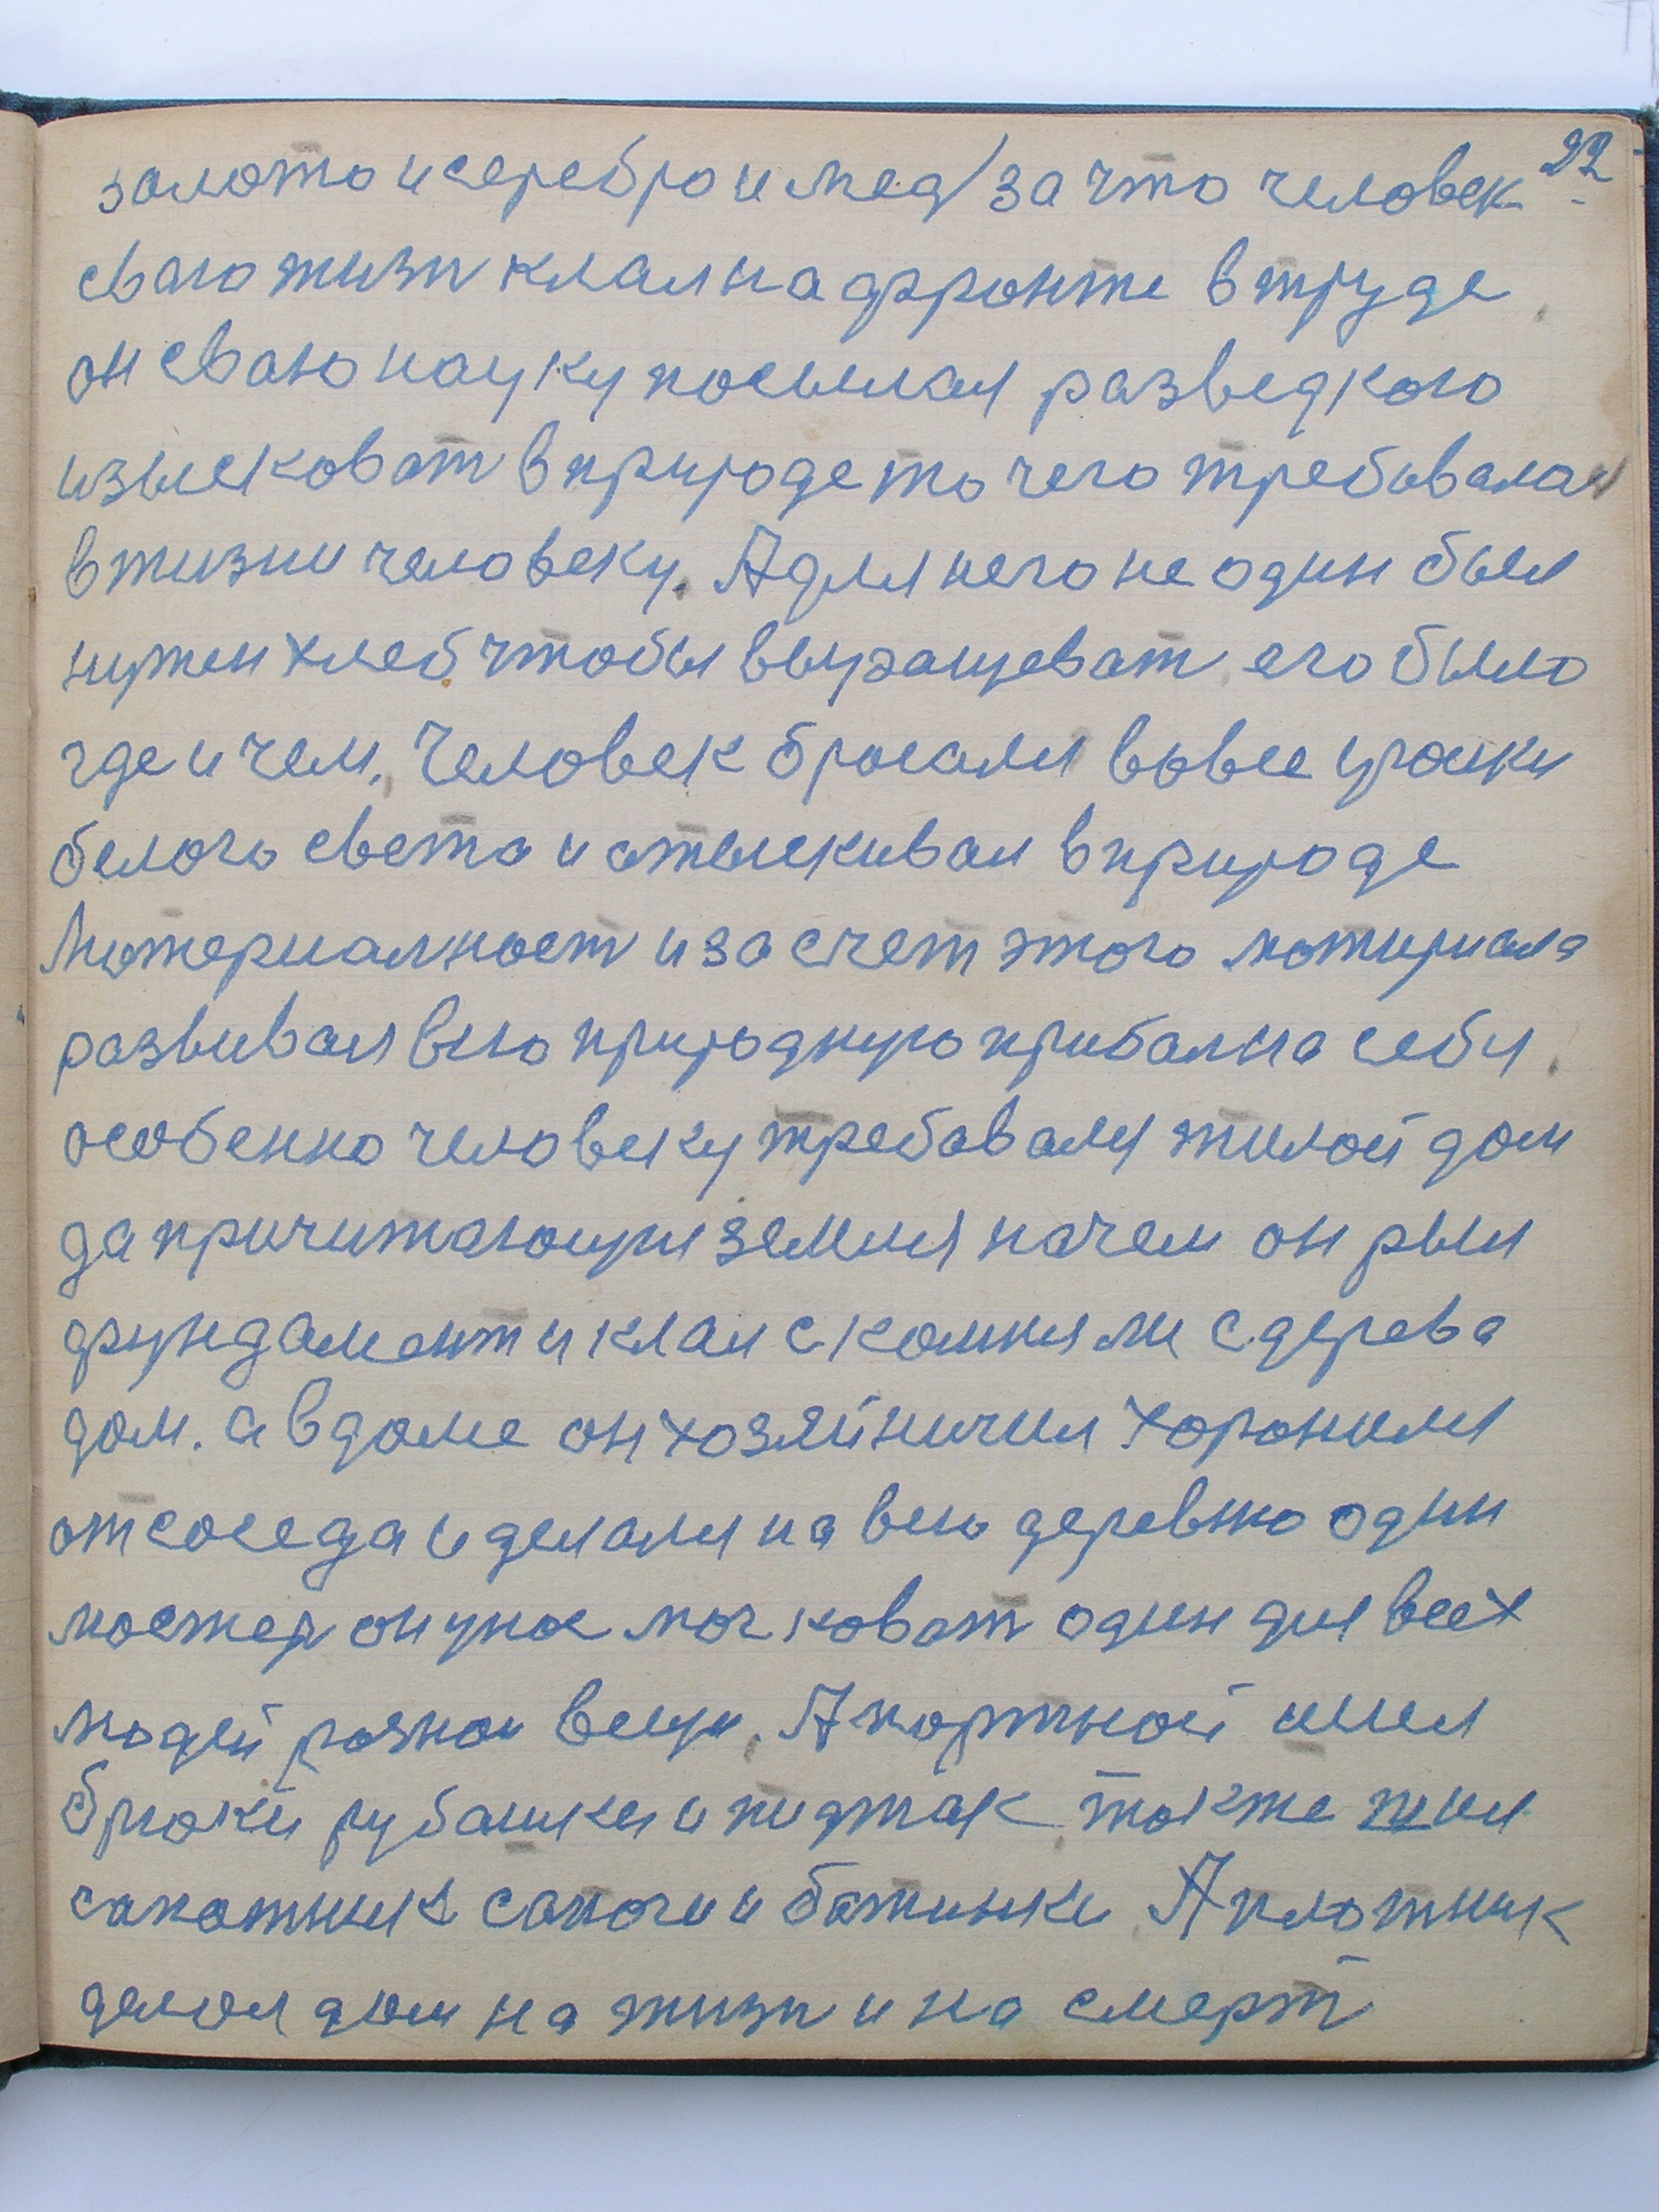 22
золото и серебро и мед за что человек
сваю жизн клал на фронте в труде
он сваю науку посылал разведкою
изысковат в природе то чего требывалас
в жизни человеку. А для него не один был
нужен хлеб чтобы выращеват его было
где и чем. Человек бросался во все уголки
белого света и отыскивал в природе
Материалност и за счет этого матириала
развивал всю природную прибал на себя
особенно человеку требавался жилой дом
да причитающия земля на чем он рыл
фундамент и клал с камнями с дерева
дом. а в доме он хозяйничил хоронился
от соседа и делался на всю деревню один
мастер он уже мог коват один для всех
людей разнаи вещи. А портной шил
брюки рубашки и пиджак также шил
сапожник сапоги и ботинки А плотник
делал дом на жизн и на смерт